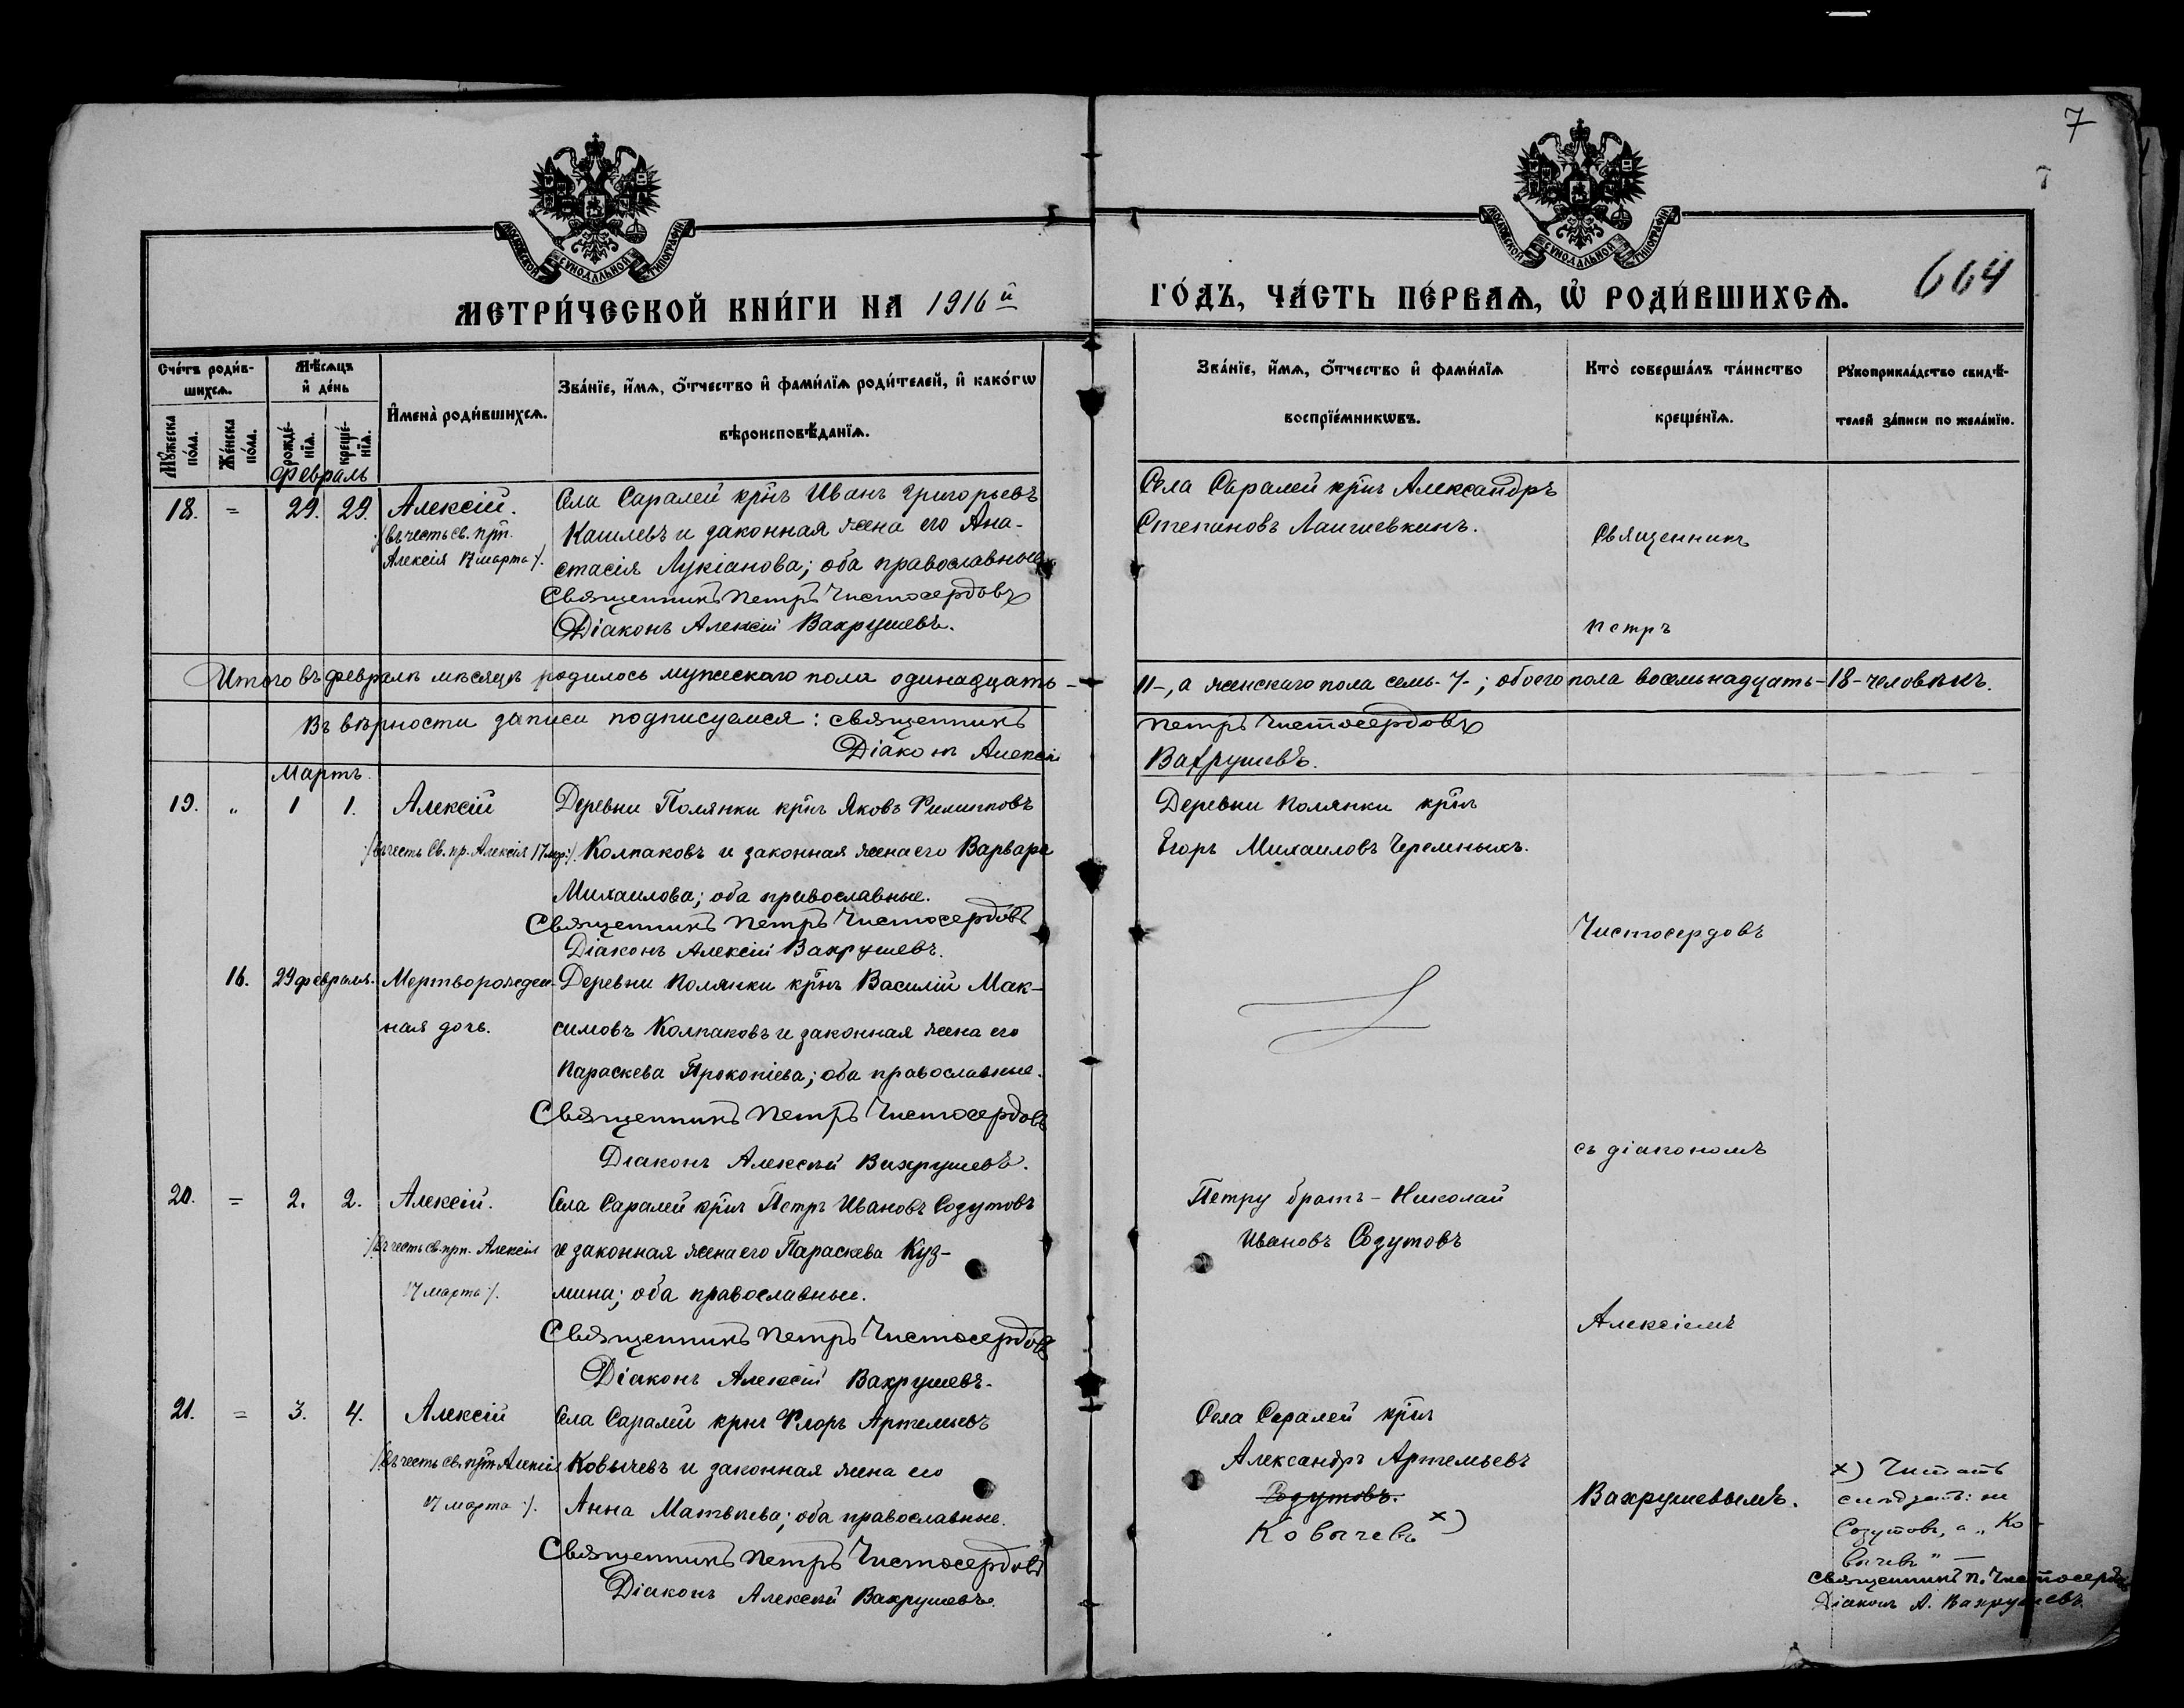 7
7
МОСКОВСКОЙ СѴНОДАЛЬНОЙ ТИПОГРАФІИ.
МОСКОВСКОЙ СѴНОДАЛЬНОЙ ТИПОГРАФІИ.
МЕТРИ́ЧЕСКОЙ КНИ́ГИ НА 1916й
ГО́ДЪ, ЧА́СТЬ ПЕ́РВАѦ, Ѡ҆ РОДИ́ВШИХСѦ.
664
Сче́тъ роди́в-
шихсѧ.
Мꙋ́жеска по́ла.
Же́нска по́ла.
Мѣ́сѧцъ
и҆ де́нь
рожде́-
нїѧ.
креще́-
нїѧ.
И҆мена̀ роди́вшихсѧ.
Зва́нїе, и҆́мѧ, ѻ҆́тчество и҆ фами́лїѧ роди́телей, и҆ како́гѡ
вѣроисповѣ́данїѧ.
Зва́нїе, и҆́мѧ, ѻ҆́тчество и҆ фами́лїѧ
воспрїе́мникѡвъ.
Кто̀ соверша́лъ та́инство
креще́нїѧ.
Рꙋкоприкла́дство свидѣ́-
телей за́писи по жела́нїю.
Февраль
18. = 29. 29. Алексій.
/:въ честь св. прп.
Алексія 17 марта:/.
Села Саралей крнъ Иванъ Григорьевъ
Кашлевъ и законная жена его Ана-
стасія Лукіанова; оба православные
Священникъ Петръ Чистосердовъ
Діаконъ Алексій Вахрушевъ.
Села Саралей крнъ Александръ
Степановъ Лаишевкинъ.
Священникъ
Петръ
Итого въ февралѣ мѣсяцѣ родилось мужескаго пола одинадцать-
11-, а женскаго пола семь-7-; обоего пола восемьнадцать-18-человѣкъ.
Въ вѣрности записи подписуемся: священникъ
Петръ Чистосердовъ
Діаконъ Алексій
Вахрушевъ.
Мартъ.
19. " 1 1. Алексій
/:въ честь Св. пр. Алексія 17 мар:/.
Деревни Полянки крнъ Яковъ Филипповъ
Колпаковъ и законная жена его Варвара
Михаилова; оба православные.
Священникъ Петръ Чистосердовъ
Діаконъ Алексій Вахрушевъ.
Деревни Полянки крнъ
Егоръ Михаиловъ Черемныхъ.
Чистосердовъ
16. 29 февраля. Мертворожден-
ная дочь.
Деревни Полянки крнъ Василій Мак-
симовъ Колпаковъ и законная жена его
Параскева Прокопіева; оба православные.
Священникъ Петръ Чистосердовъ
Діаконъ Алексѣй Вахрушевъ.
съ діакономъ
20. = 2. 2. Алексій.
/:въ честь св. прп. Алексія
17 марта:/.
Села Саралей крнъ Петръ Ивановъ Созутовъ
и законная жена его Параскева Куз-
мина; оба православные.
Священникъ Петръ Чистосердовъ
Діаконъ Алексій Вахрушевъ.
Петру братъ - Николай
Ивановъ Созутовъ
Алексіемъ
21. = 3. 4. Алексій
/:въ честь св. прп. Алексія
17 марта:/.
Села Саралей крнъ Флоръ Артемьевъ
Ковычевъ и законная жена его
Анна Матвѣева; оба православные.
Священникъ Петръ Чистосердовъ
Діаконъ Алексѣй Вахрушевъ.
Села Саралей крнъ
Александръ Артемьевъ
Созутовъ.
Ковычевъ х)
Вахрушевымъ.
х) Читать
слѣдуетъ: не
Созутовъ, а „Ко-
вычевъ" -
Священникъ П. Чистосердовъ
Діаконъ А. Вахрушевъ.